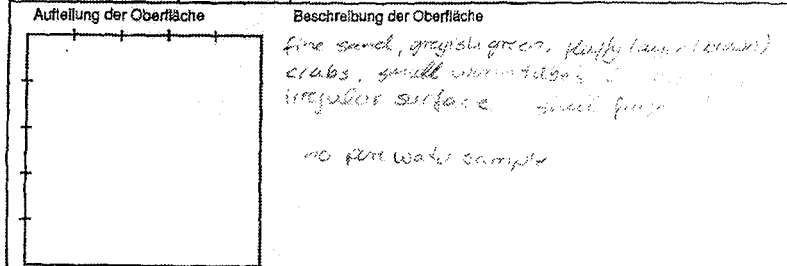 Aufteilung der Oberfläche
Beschreibung der Oberfläche
fine sand, greyish green, fluffy layer (brown)
crabs, small worm tubes
irregular surface small
no pore water sample